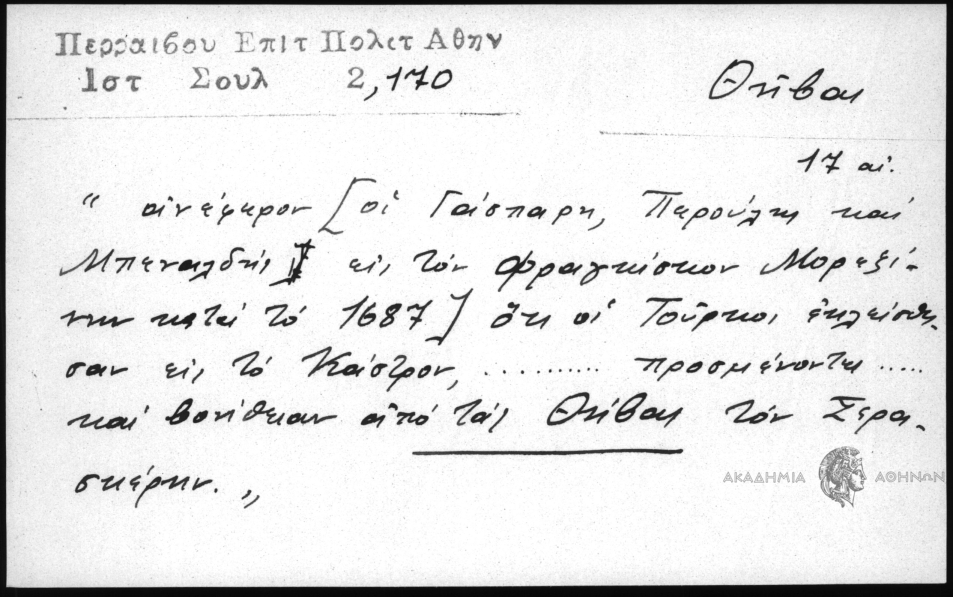 Περραιβου Επιτ Πολετ Αθην
Ιστ Σουλ 2,170
Θῆβαι
17 αἰ.
“ ἀνέφερον [οἱ Γάσπαρη, Περούλης καὶ
Μπεναλδῆς εἰς τὸν Φραγκίσκον Μορεζί-
νην κατὰ τὸ 1687] ὅτι οἱ Τοῦρκοι ἐκλείσθη-
σαν εἰς τὸ Κάστρον, .......... προσμένοντες .....
καὶ βοήθειαν ἀπὸ τὰς Θήβας τὸν Σερα-
σκέρην. „
ΑΚΑΔΗΜΙΑ ΑΘΗΝΩΝ